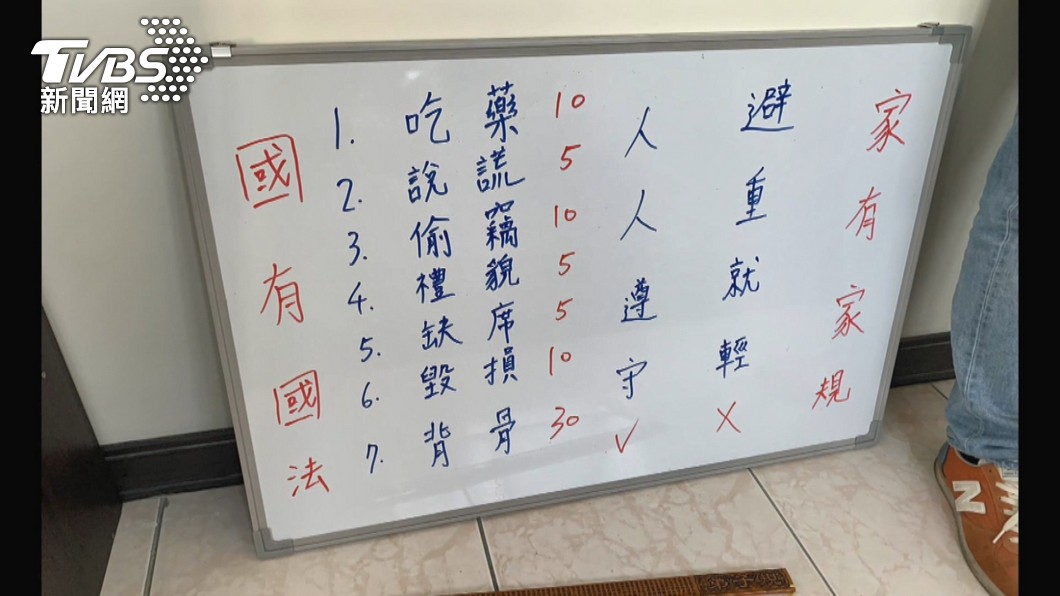 TVBS
新聞網
國有國法
1. 吃藥 10
2. 說謊 5
3. 偷竊 10
4. 禮貌 5
5. 缺席 5
6. 毀損 10
7. 背骨 30
人人遵守 ✓
避重就輕 X
家有家規
N